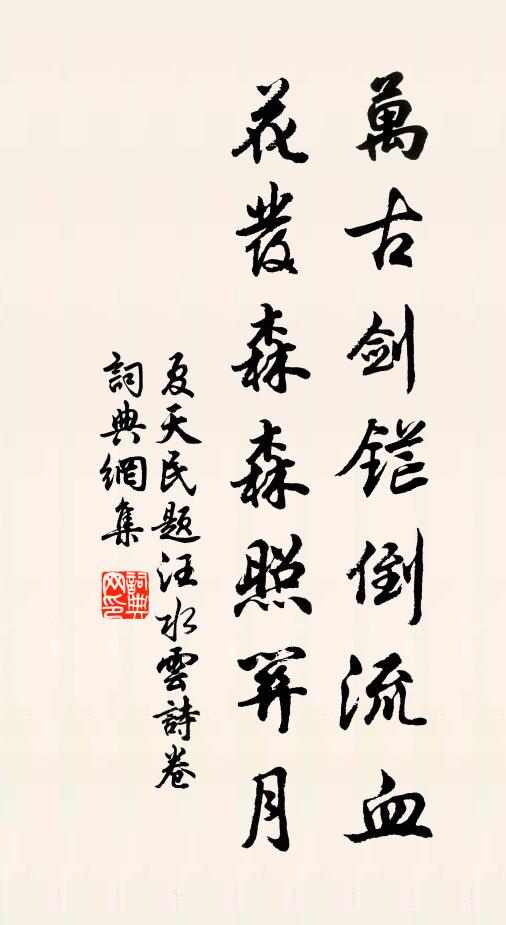 萬古剑鋩倒流血
花發森森照月
夏天民題汪水雲詩卷
詞典網集
詞典
网印